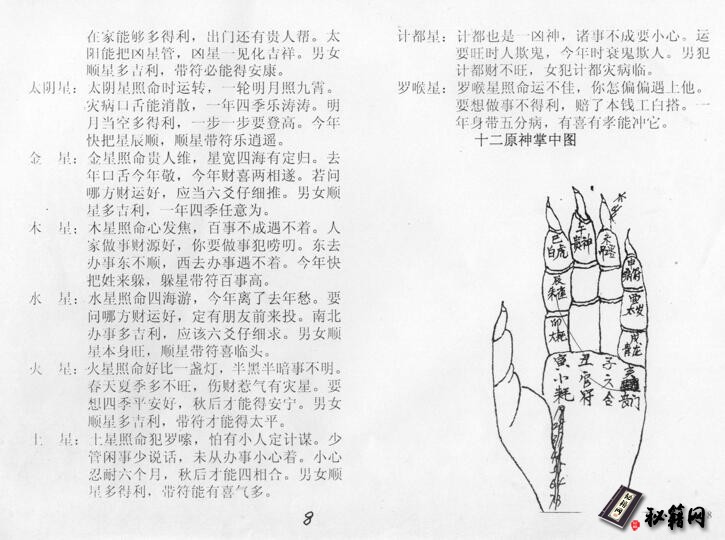 在家能够多得利，出门还有贵人帮。太
阳能把凶星管，凶星一见化吉祥。男女
顺星多吉利，带符必能得安康。
太阴星：太阴星照命时运转，一轮明月照九霄。
灾病口舌能消散，一年四季乐涛涛。明
月当空多得利，一步一步要登高。今年
快把星辰顺，顺星带符乐逍遥。
金　星：金星照命贵人维，星宽四海有定归。去
年口舌今年敬，今年财喜两相遂。若问
哪方财运好，应当六爻仔细推。男女顺
星多吉利，一年四季任意为。
木　星：木星照命心发焦，百事不成遇不着。人
家做事财源好，你要做事犯唠叨。东去
办事东不顺，西去办事遇不着。今年快
把姓来躲，躲星带符百事高。
水　星：水星照命四海游，今年离了去年愁。要
问哪方财运好，定有朋友前来投。南北
办事多吉利，应该六爻仔细求。男女顺
星本身旺，顺星带符喜临头。
火　星：火星照命好比一盏灯，半黑半暗事不明。
春天夏季多不旺，伤财惹气有灾星。要
想四季平安好，秋后才能得安宁。男女
顺星多吉利，带符才能得太平。
土　星：土星照命犯罗嗦，怕有小人定计谋。少
管闲事少说话，未从办事小心着。小心
忍耐六个月，秋后才能四相合。男女顺
星多得利，带符能有喜气多。
8
计都星：计都也是一凶神，诸事不成要小心。运
要旺时人欺鬼，今年时衰鬼欺人。男犯
计都财不旺，女犯计都灾病临。
罗喉星：罗喉星照命运不佳，你怎偏偏遇上他。
要想做事不得利，赔了本钱工白搭。一
年身带五分病，有喜有孝能冲它。
十二原神掌中图
巳
白虎
午
贵神
未
申
酉
太岁
戌
青龙
辰
朱雀
卯
大耗
寅
小耗
丑
官符
子
六合
秘籍网
8